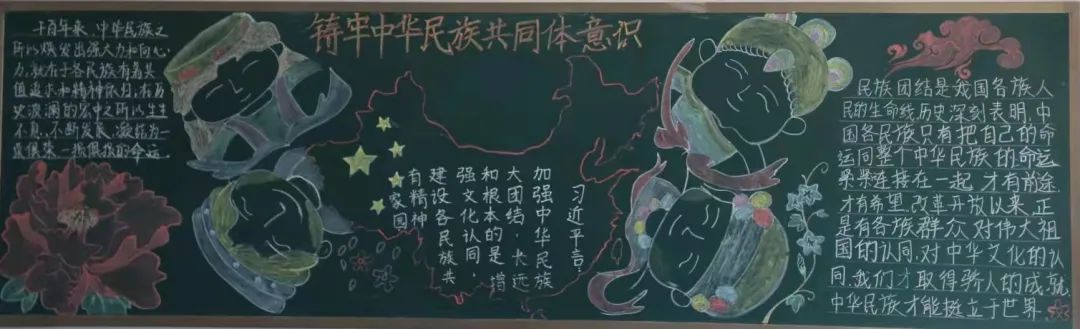 铸牢中华民族共同体意识
千百年来,中华民族之
所以焕发出强大力和向心
力,就在于各民族有着共
值追求和精神依归,在历
史波澜的宏中之所以生生
不息,不断发展,凝结为一
荣俱荣一损俱损的命运。
习近平言:
加强中华民族
大团结,长远
和根本的是增
强文化认同,
建设各民族共
有精神
家园
民族团结是我国各族人
民的生命线,历史深刻表明,中
国各民族只有把自己的命
运同整个中华民族的命运
紧紧连接在一起,才有前途,
才有希望,改革开放以来,正
是有各族群众对伟大祖
国的认同,对中华文化的认
同,我们才取得骄人的成就
中华民族才能挺立于世界